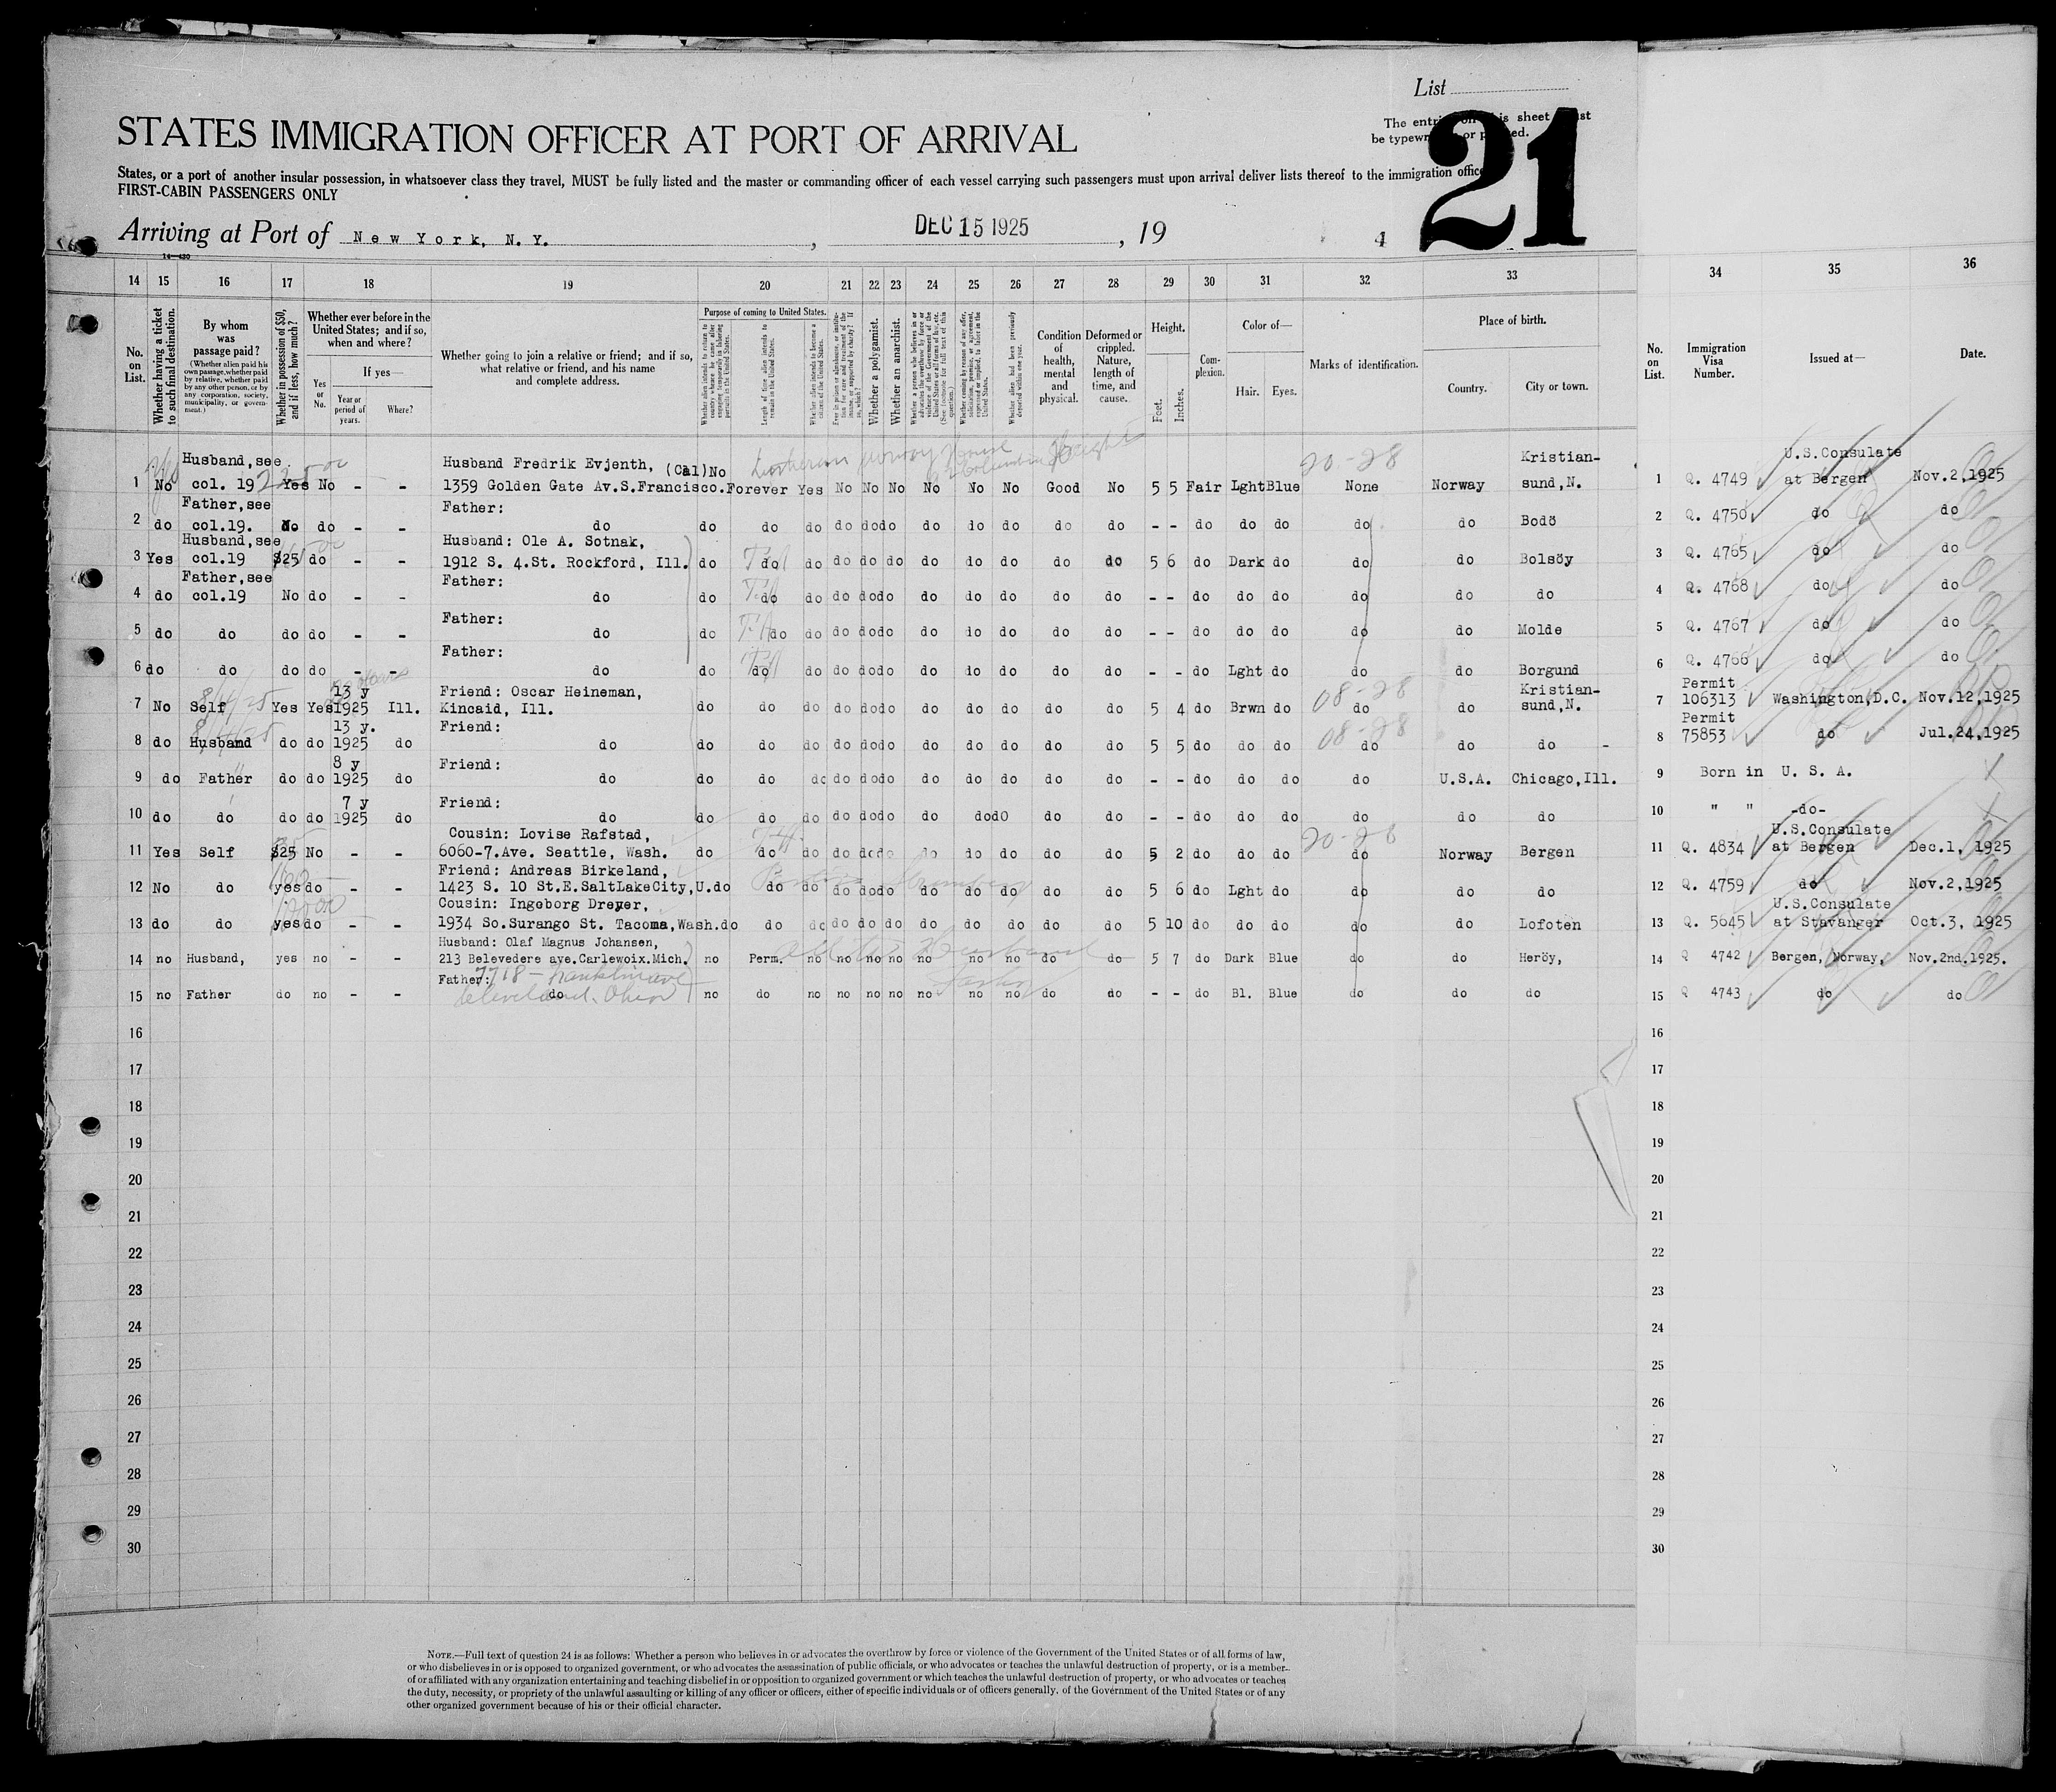 List
The entries on this sheet must
be typewritten or printed.
21
STATES IMMIGRATION OFFICER AT PORT OF ARRIVAL
States, or a port of another insular possession, in whatsoever class they travel, MUST be fully listed and the master or commanding officer of each vessel carrying such passengers must upon arrival deliver lists thereof to the immigration officer
FIRST-CABIN PASSENGERS ONLY
Arriving at Port of New York, N. Y. , DEC 15 1925 , 19
4
14—430
14 15 16 17 18 19 20 21 22 23 24 25 26 27 28 29 30 31 32 33 34 35 36
No. on List.
Whether having a ticket to such final destination.
By whom was passage paid?
(Whether alien paid his own passage, whether paid by relative, whether paid by any other person, or by any corporation, society, municipality, or government.)
Whether in possession of $50, and if less, how much?
Whether ever before in the United States; and if so, when and where?
Yes or No.
If yes—
Year or period of years.
Where?
Whether going to join a relative or friend; and if so, what relative or friend, and his name and complete address.
Purpose of coming to United States.
Length of time alien intends to remain in the United States.
Whether alien intends to become a citizen of the United States.
Whether a polygamist.
Whether an anarchist.
Condition of health, mental and physical.
Deformed or crippled. Nature, length of time, and cause.
Height.
Feet. Inches.
Complexion.
Color of—
Hair. Eyes.
Marks of identification.
Place of birth.
Country. City or town.
No. on List.
Immigration Visa Number.
Issued at—
Date.
Husband,see Husband Fredrik Evjenth, (Cal) 20-28 Kristian- U.S.Consulate
1 No col. 19 Yes No - - 1359 Golden Gate Av.S.Francisco. No Forever Yes No No No No No No Good No 5 5 Fair Lght Blue None Norway sund,N. 1 Q. 4749 at Bergen Nov.2,1925
Father,see Father:
2 do col.19. do do - - do do do do do do do do do do do do - - do do do do do Bodö 2 Q. 4750 do do
Husband,see Husband: Ole A. Sotnak,
3 Yes col.19 $25 do - - 1912 S. 4.St. Rockford, Ill. do do do do do do do do do do do 5 6 do Dark do do do Bolsöy 3 Q. 4765 do do
Father,see Father:
4 do col.19 No do - - do do do do do do do do do do do do - - do do do do do do 4 Q. 4768 do do
Father:
5 do do do do - - do do do do do do do do do do do do - - do do do do do Molde 5 Q. 4767 do do
Father:
6 do do do do - - do do do do do do do do do do do do - - do Lght do do do Borgund 6 Q. 4766 do do
13 y Friend: Oscar Heineman, 08-28 Kristian- Permit
7 No Self Yes Yes 1925 Ill. Kincaid, Ill. do do do do do do do do do do do 5 4 do Brwn do do do sund,N. 7 106313 Washington,D.C. Nov.12,1925
13 y. Friend: 08-28 Permit
8 do Husband do do 1925 do do do do do do do do do do do do do 5 5 do do do do do do - 8 75853 do Jul.24,1925
8 y Friend:
9 do Father do do 1925 do do do do do do do do do do do do do - - do do do do U.S.A. Chicago,Ill. 9 Born in U. S. A.
7 y Friend:
10 do do do do 1925 do do do do do do do do do do do do do - - do do do do do do 10 " " -do-
Cousin: Lovise Rafstad, 20-28 U.S.Consulate
11 Yes Self $25 No - - 6060-7.Ave. Seattle, Wash. do do do do do do do do do do do 5 2 do do do do Norway Bergen 11 Q. 4834 at Bergen Dec.1, 1925
Friend: Andreas Birkeland,
12 No do yes do - - 1423 S. 10 St.E.SaltLakeCity,U. do do do do do do do do do do do 5 6 do Lght do do do do 12 Q. 4759 do Nov.2,1925
Cousin: Ingeborg Dreyer, U.S.Consulate
13 do do yes do - - 1934 So.Surango St. Tacoma,Wash. do do do do do do do do do do do 5 10 do do do do do Lofoten 13 Q. 5645 at Stavanger Oct.3, 1925
Husband: Olaf Magnus Johansen,
14 no Husband, yes no - - 213 Belevedere ave.Carlewoix.Mich. no Perm. no no no no no no no do do 5 7 do Dark Blue do do Heröy, 14 Q 4742 Bergen, Norway, Nov.2nd.1925.
Father: 7718 - Franklin ave
15 no Father do no - - do Cleveland, Ohio no do no no no no no no no do do - - do Bl. Blue do do do 15 Q 4743 do do
16 16
17 17
18 18
19 19
20 20
21 21
22 22
23 23
24 24
25 25
26 26
27 27
28 28
29 29
30 30
NOTE.—Full text of question 24 is as follows: Whether a person who believes in or advocates the overthrow by force or violence of the Government of the United States or of all forms of law,
or who disbelieves in or is opposed to organized government, or who advocates the assassination of public officials, or who advocates or teaches the unlawful destruction of property, or is a member
of or affiliated with any organization entertaining and teaching disbelief in or opposition to organized government or which teaches the unlawful destruction of property, or who advocates or teaches
the duty, necessity, or propriety of the unlawful assaulting or killing of any officer or officers, either of specific individuals or of officers generally, of the Government of the United States or of any
other organized government because of his or their official character.